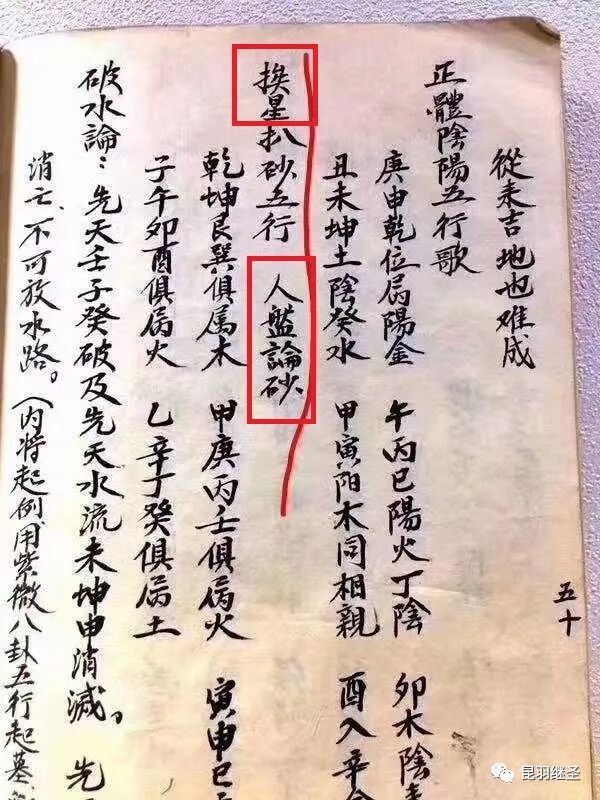 從来吉地也难成
正體陰陽五行歌
庚申乾位属陽金 午丙巳陽火丁陰 卯木陰
丑未坤土陰癸水 甲寅阳木同相親 酉入辛
挨星扒砂五行 人盤論砂
乾坤艮巽俱属木 甲庚丙壬俱属火 寅申巳
子午卯酉俱属火 乙辛丁癸俱属土
破水論：先天壬子癸破及先天水流未坤申消滅。先
消亡、不可放水路。（内将起例用紫微八卦五行起墓
五十
昆羽继圣